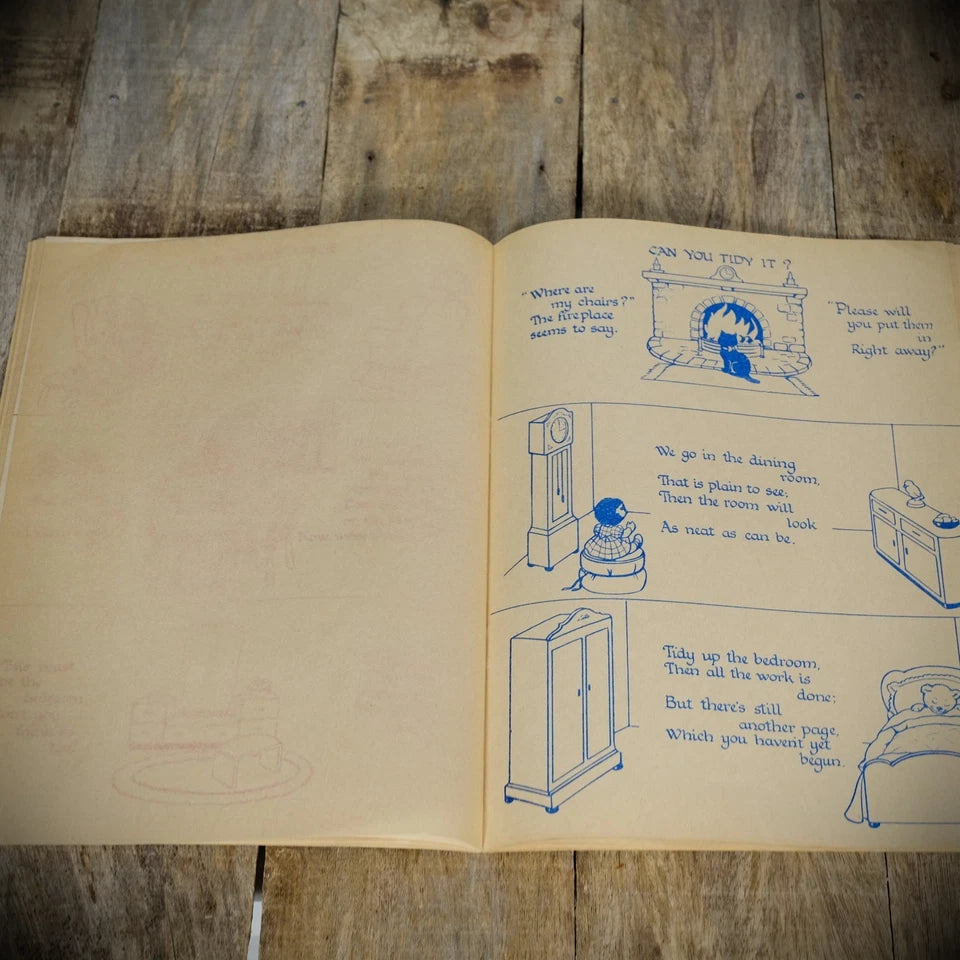 CAN YOU TIDY IT ?
"Where are
my chairs?"
The fireplace
seems to say.
"Please will
you put them
in
Right away?"
We go in the dining
room,
That is plain to see;
Then the room will
look
As neat as can be.
Tidy up the bedroom,
Then all the work is
done;
But there's still
another page,
Which you haven't yet
begun.